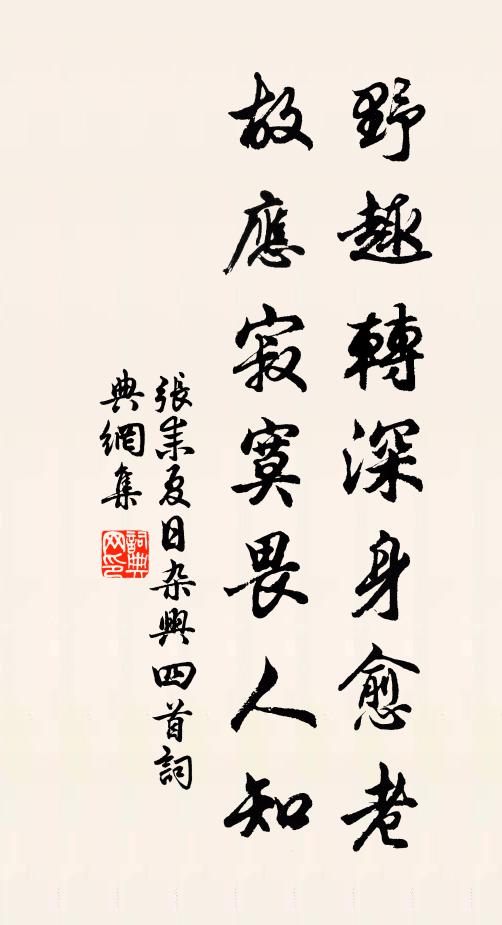 野趣轉深身愈老
故應寂寞畏人知
張耒夏日杂興四首詞
典網集
詞典
网印